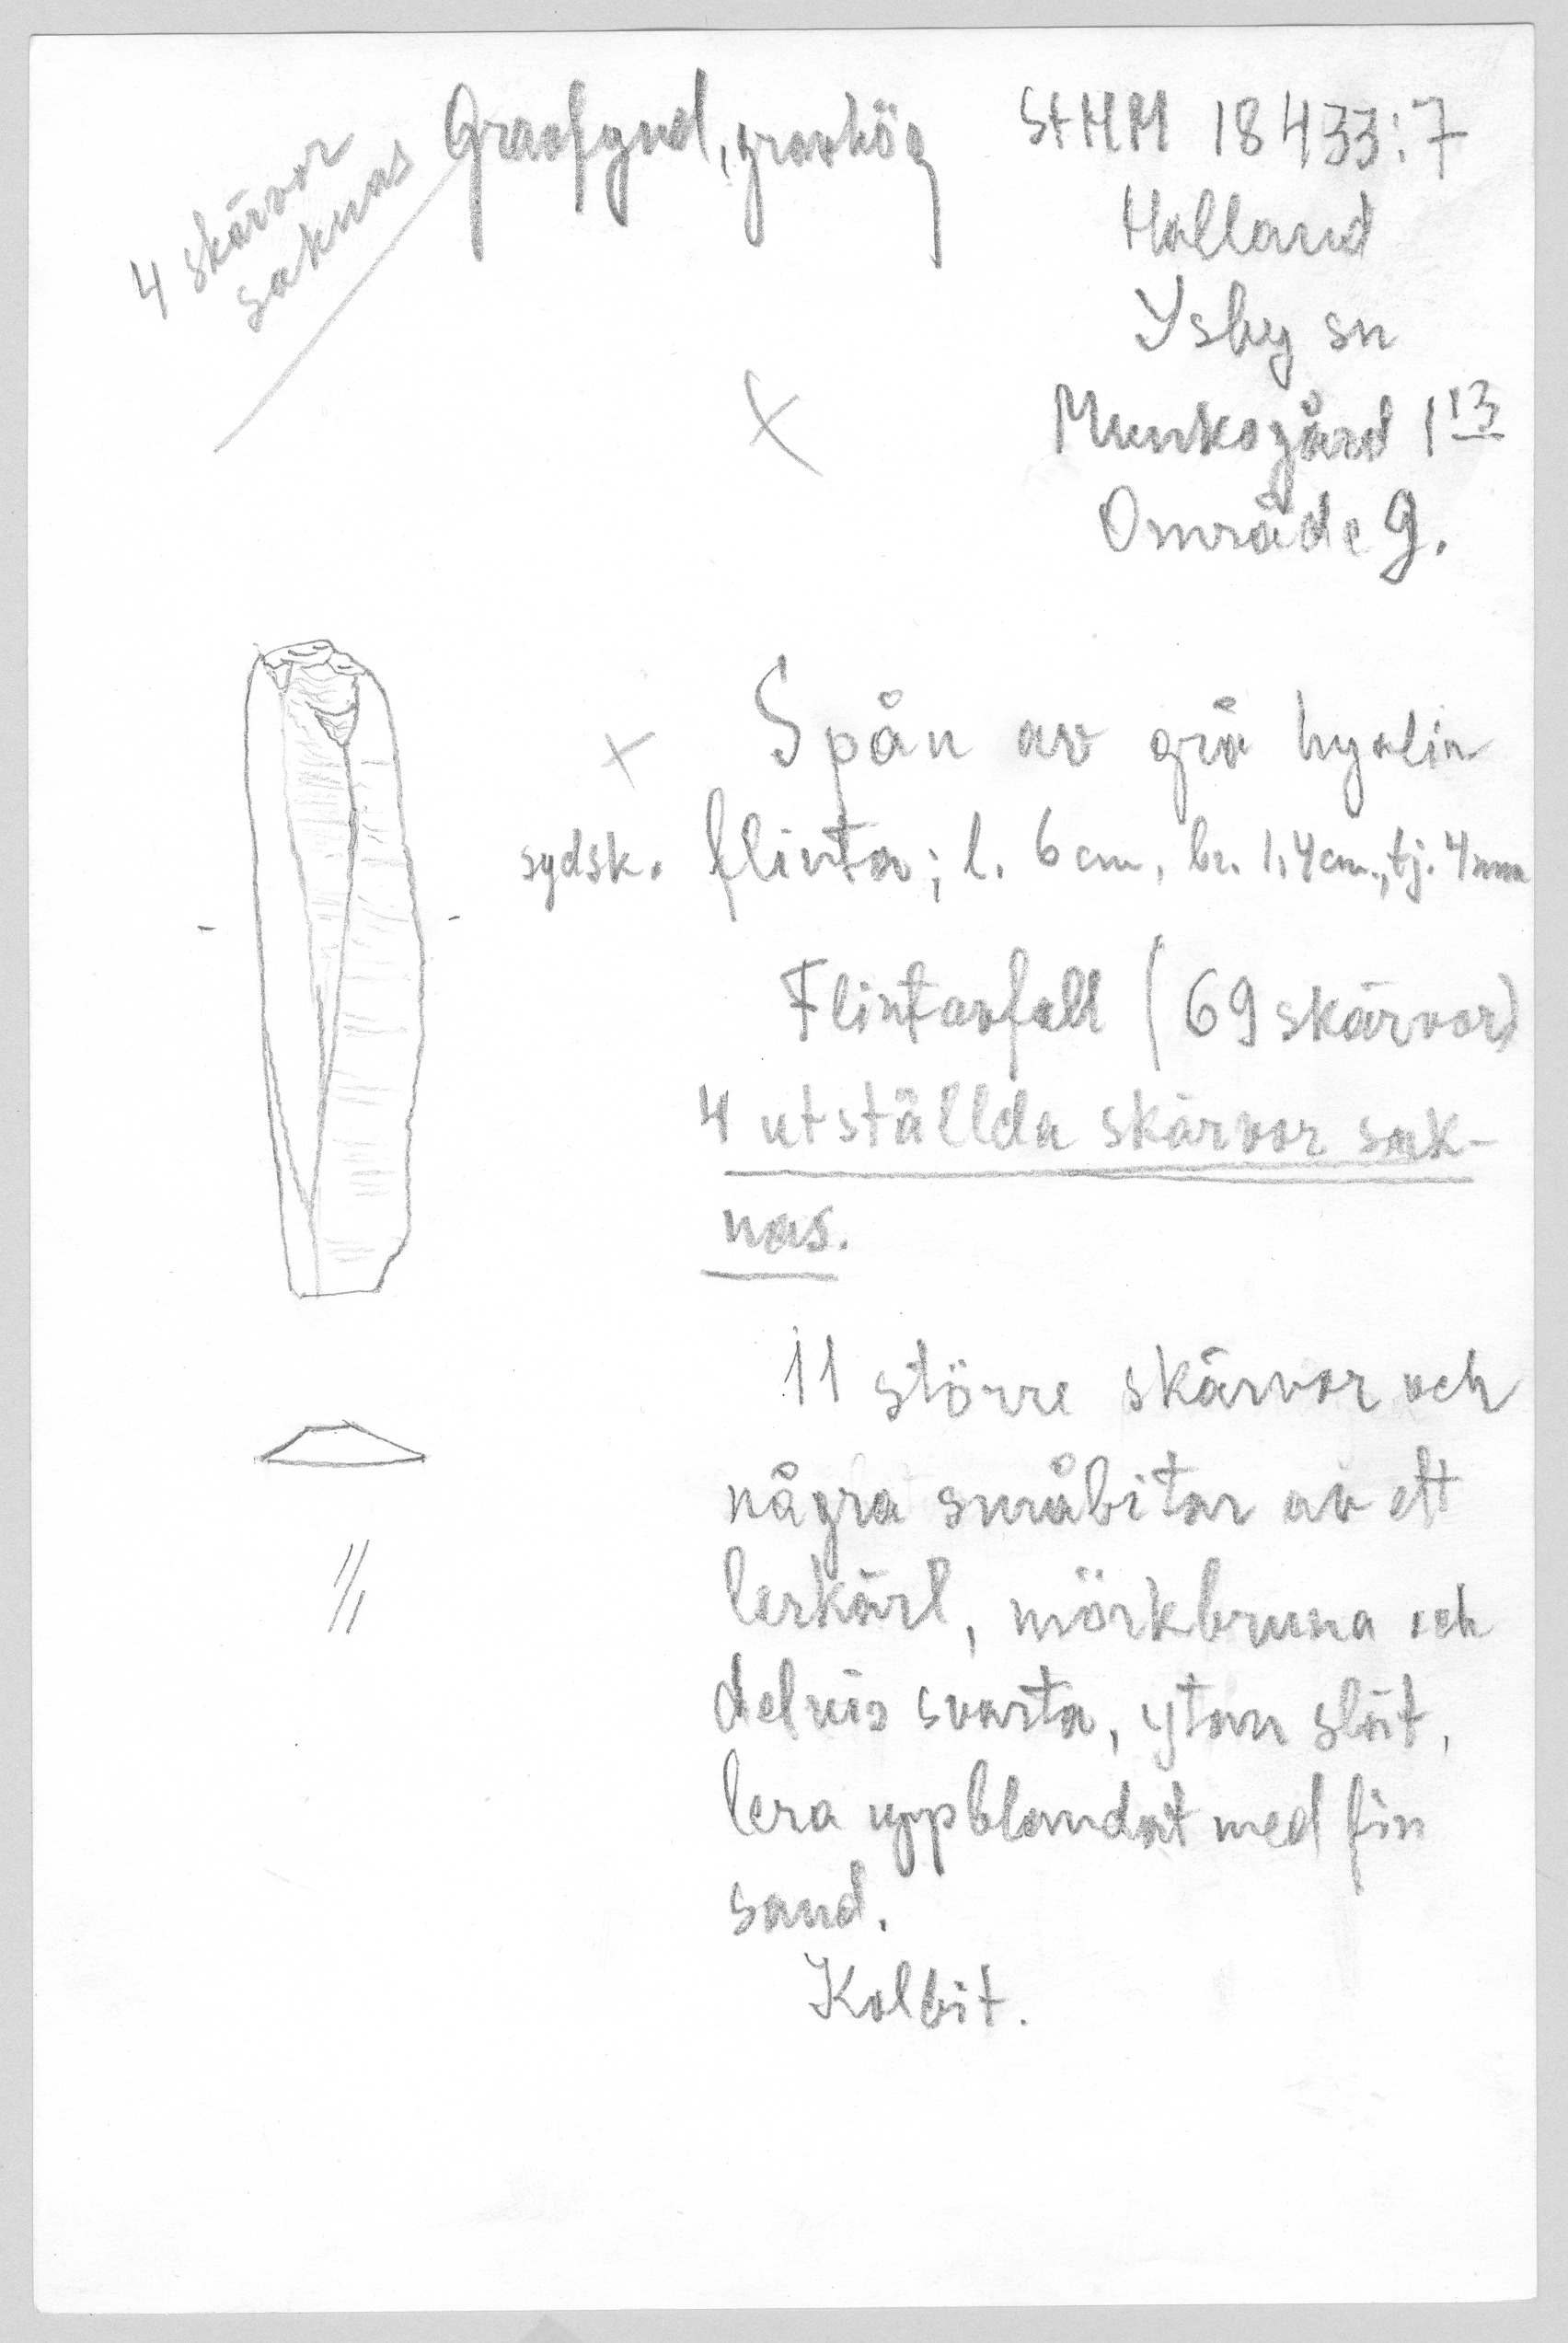 4 skärvor
saknas
Gravfynd, gravhög
StHM 18433:7
Halland
Ysby sn
Munkagård 1 13
Område 9.
Spån av grå hyalin
sydsk. flinta; l. 6 cm, br. 1,4 cm., tj. 4 mm
Flintavfall (69 skärvor)
4 utställda skärvor sak-
nas.
11 större skärvor och
några småbitar av ett
lerkärl, mörkbruna och
delvis svarta, ytan slät,
lera uppblandat med fin
sand.
Kolbit.
1/1